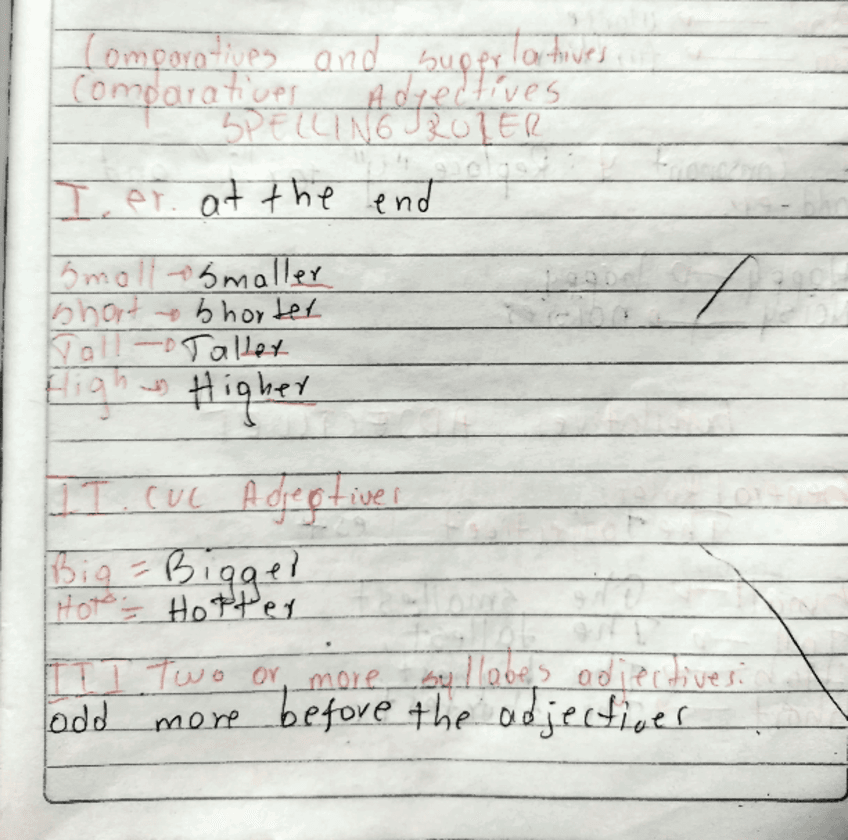 Comparatives and superlatives
Comparatives Adjectives
SPELLING RULER
I. er. at the end
Small → Smaller
Short → Shorter
Tall → Taller
High → Higher
II. CVC Adjectives
Big = Bigger
Hot = Hotter
III Two or more syllabes adjectives:
add more before the adjectives